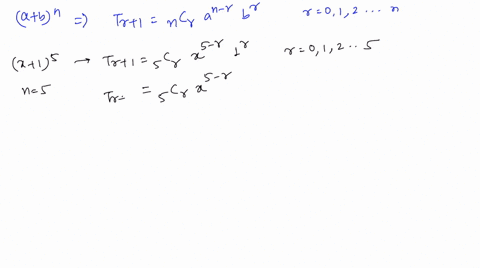 (a+b)^n => T_{r+1} = nC_r a^{n-r} b^r r = 0, 1, 2 ... n
(x+1)^5 → T_{r+1} = 5C_r x^{5-r} 1^r r = 0, 1, 2 .. 5
n=5 T_{r-} = 5C_r x^{5-r}